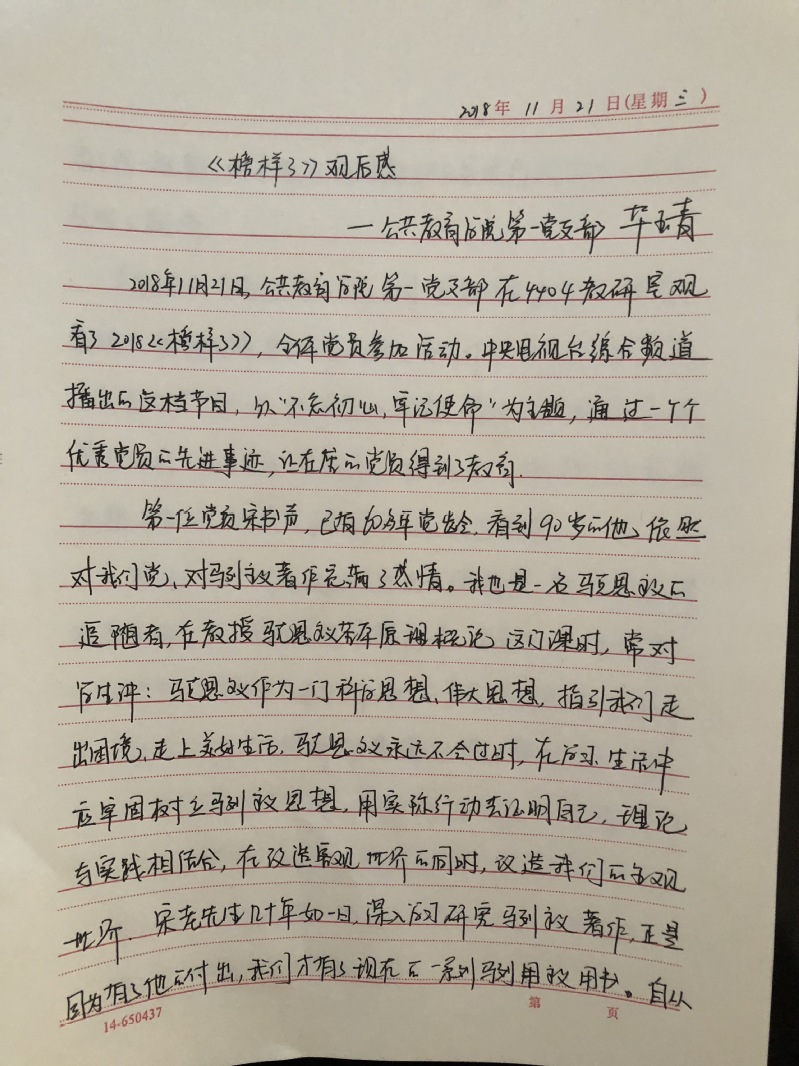 2018年 11月 21日(星期三)
《榜样3》观后感
—公共教育学院第一党支部 华玉青
2018年11月21日,公共教育学院第一党支部在4404教研室观
看了2018《榜样3》,全体党员参加活动。中央电视台综合频道
播出的这档节目,以"不忘初心,牢记使命"为主题,通过一个个
优秀党员的先进事迹,让在座的党员得到了教育.
第一位党员宋书声,已有多年党龄,看到90岁的他、依然
对我们党、对马列主义著作充满了热情。我也是一名马克思主义的
追随者,在教授马克思主义基本原理概论这门课时,常对
学生讲:马克思主义作为一门科学思想、伟大思想,指引我们走
出困境、走上美好生活,马克思主义永远不会过时,在学习生活中
应牢固树立马列主义思想,用实际行动去证明自己,理论
与实践相结合,在改造客观世界的同时,改造我们的主观
世界.宋老先生几十年如一日,深入学习研究马列主义著作,正是
因为有了他的付出,我们才有了现在的一系列马列用书。自从
14-650437 第 页